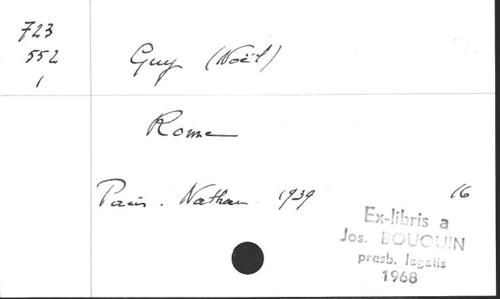 723
552
1
Guy (Noël)
Rome
Paris. Nathan 1939 16
Ex-libris a
Jos. BOUQUIN
presb. legatis
1968